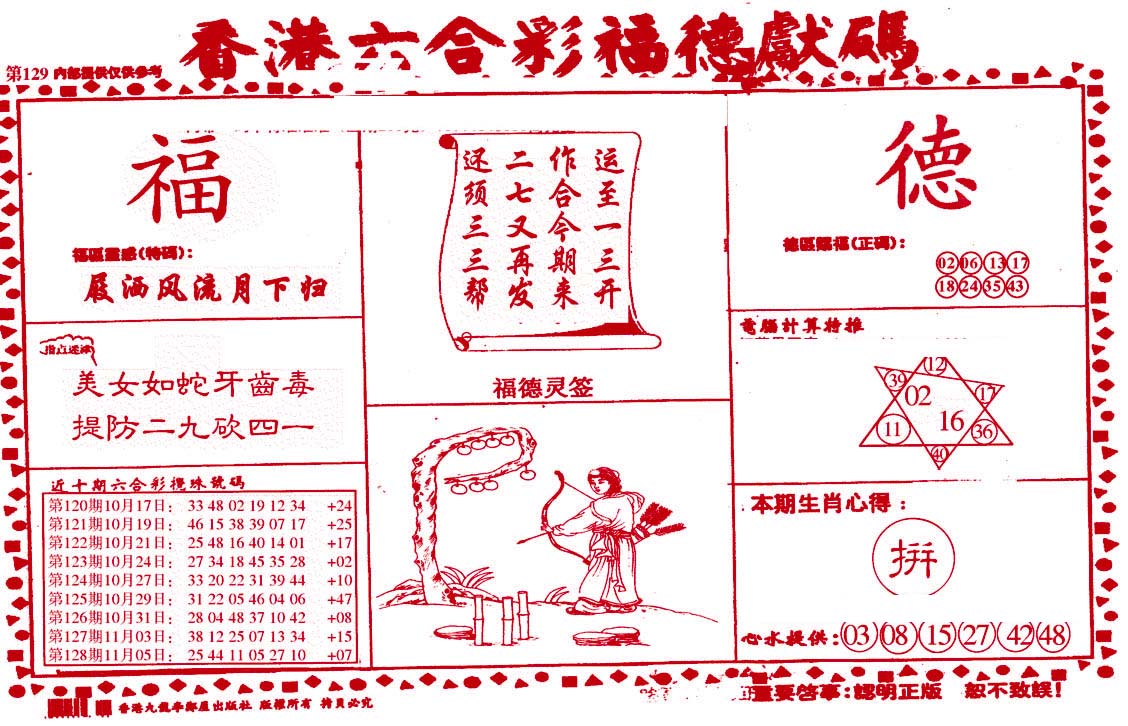 香港六合彩福德獻碼
第129 内部提供仅供参考
福
福區靈感(特碼):
屐洒风流月下归
指点迷津
美女如蛇牙齒毒
提防二九砍四一
近十期六合彩攪珠號碼
第120期10月17日: 33 48 02 19 12 34 +24
第121期10月19日: 46 15 38 39 07 17 +25
第122期10月21日: 25 48 16 40 14 01 +17
第123期10月24日: 27 34 18 45 35 28 +02
第124期10月27日: 33 20 22 31 39 44 +10
第125期10月29日: 31 22 05 46 04 06 +47
第126期10月31日: 28 04 48 37 10 42 +08
第127期11月03日: 38 12 25 07 13 34 +15
第128期11月05日: 25 44 11 05 27 10 +07
运至一三开
作合今期来
二七又再发
还须三三帮
福德灵签
德
德區賜福(正碼):
02 06 13 17
18 24 35 43
電腦計算特推
12
39 02 17
11 16 36
40
本期生肖心得:
拼
心水提供:03 08 15 27 42 48
香港九龍 出版社 版權所有 拷貝必究
重要啓事:認明正版 恕不致誤!